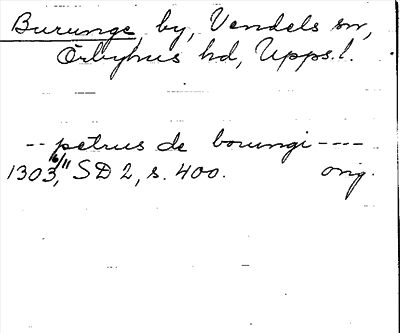 Burunge by, Vendels sn,
Örbyhus hd, Upps.l.
-- petrus de borungi ----
1303 16/11, SD 2, s. 400. orig.